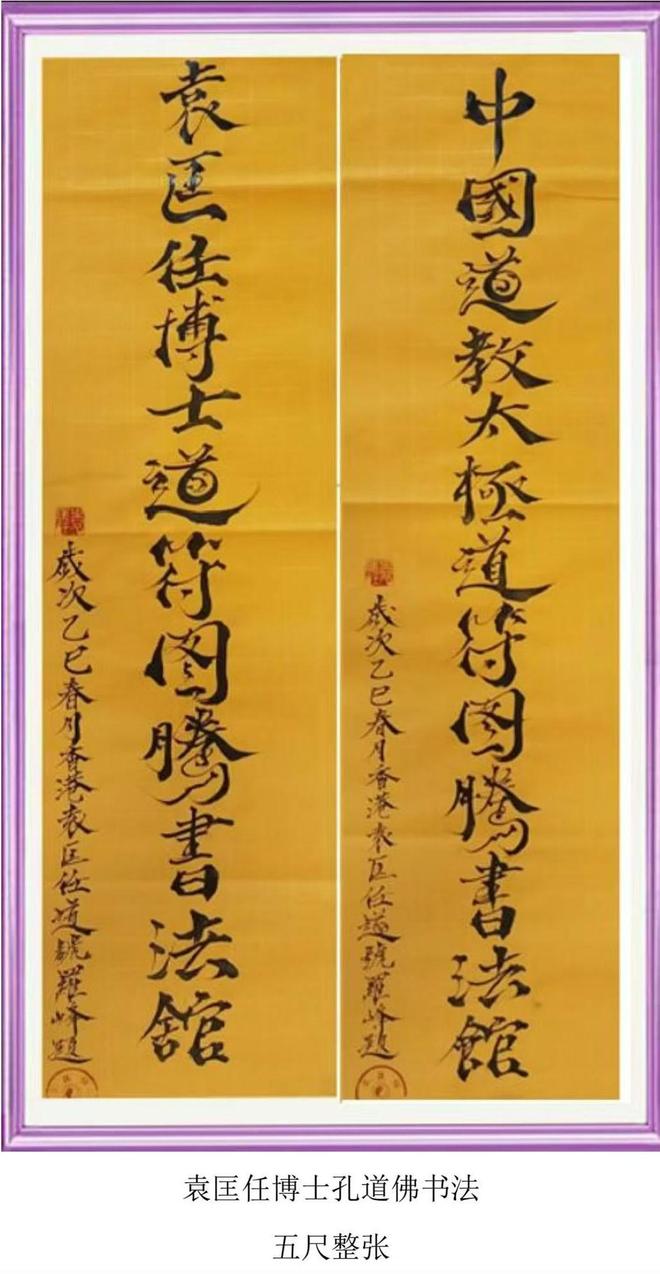 中國道教太極道符图騰書法館
歲次乙巳春月香港袁匡任道號羅峰題
袁匡任博士道符图騰書法館
歲次乙巳春月香港袁匡任道號羅峰題
袁匡任博士孔道佛书法
五尺整张